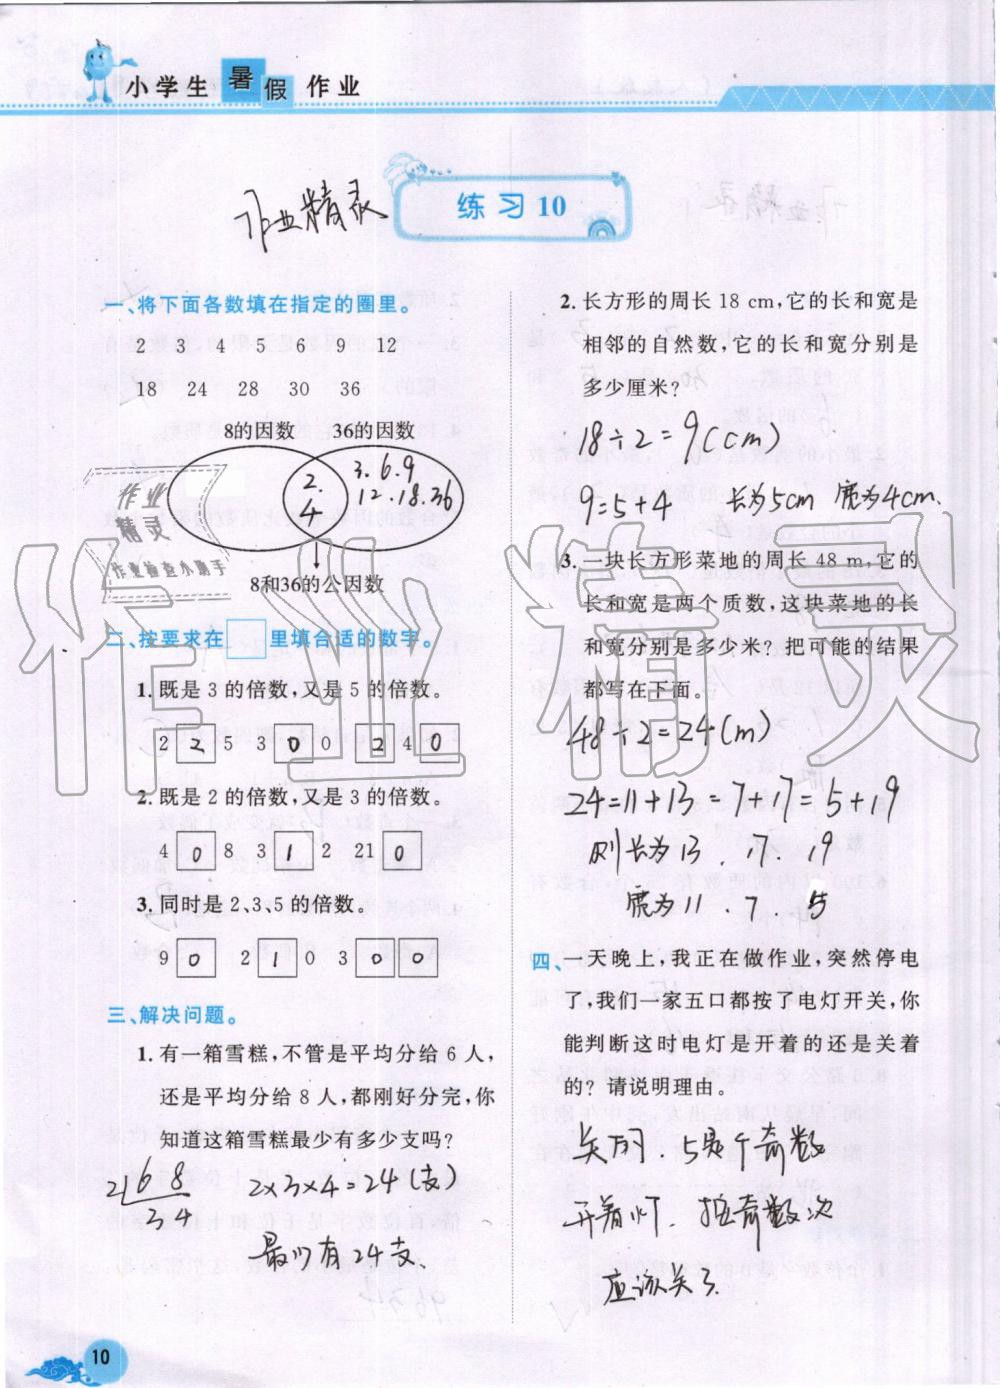 小学生暑假作业
作业精灵
练习10
一、将下面各数填在指定的圈里。
2 3 4 5 6 9 12
18 24 28 30 36
8的因数 36的因数
2. 3.6.9
4 12.18.36
作业
精灵
作业检查小助手
8和36的公因数
二、按要求在□里填合适的数字。
1. 既是 3 的倍数,又是 5 的倍数。
2 2 5 3 0 0 2 4 0
2. 既是 2 的倍数,又是 3 的倍数。
4 0 8 3 1 2 21 0
3. 同时是 2、3、5 的倍数。
9 0 2 1 0 3 0 0
三、解决问题。
1. 有一箱雪糕,不管是平均分给 6 人,
还是平均分给 8 人,都刚好分完,你
知道这箱雪糕最少有多少支吗?
2 6 8
3 4
2×3×4=24(支)
最少有24支.
2. 长方形的周长 18 cm,它的长和宽是
相邻的自然数,它的长和宽分别是
多少厘米?
18÷2=9(cm)
9=5+4 长为5cm 宽为4cm.
3. 一块长方形菜地的周长 48 m,它的
长和宽是两个质数,这块菜地的长
和宽分别是多少米? 把可能的结果
都写在下面。
48÷2=24(m)
24=11+13=7+17=5+19
则长为13.17.19
宽为11.7.5
四、一天晚上,我正在做作业,突然停电
了,我们一家五口都按了电灯开关,你
能判断这时电灯是开着的还是关着
的? 请说明理由。
关的.5是个奇数
开着灯.拉奇数次
应该关了.
10
作业精灵